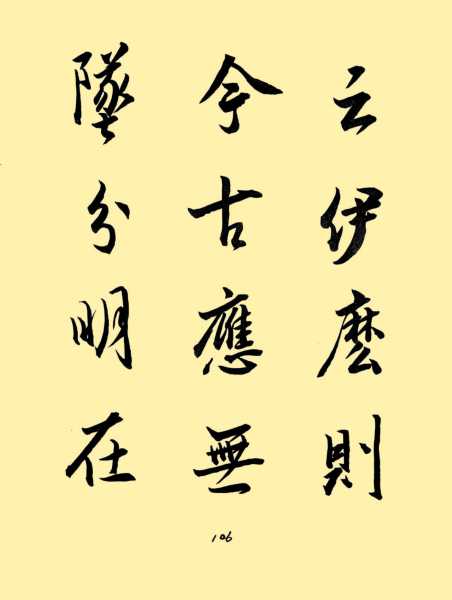 云伊麼則
今古應無
墜分明在
106